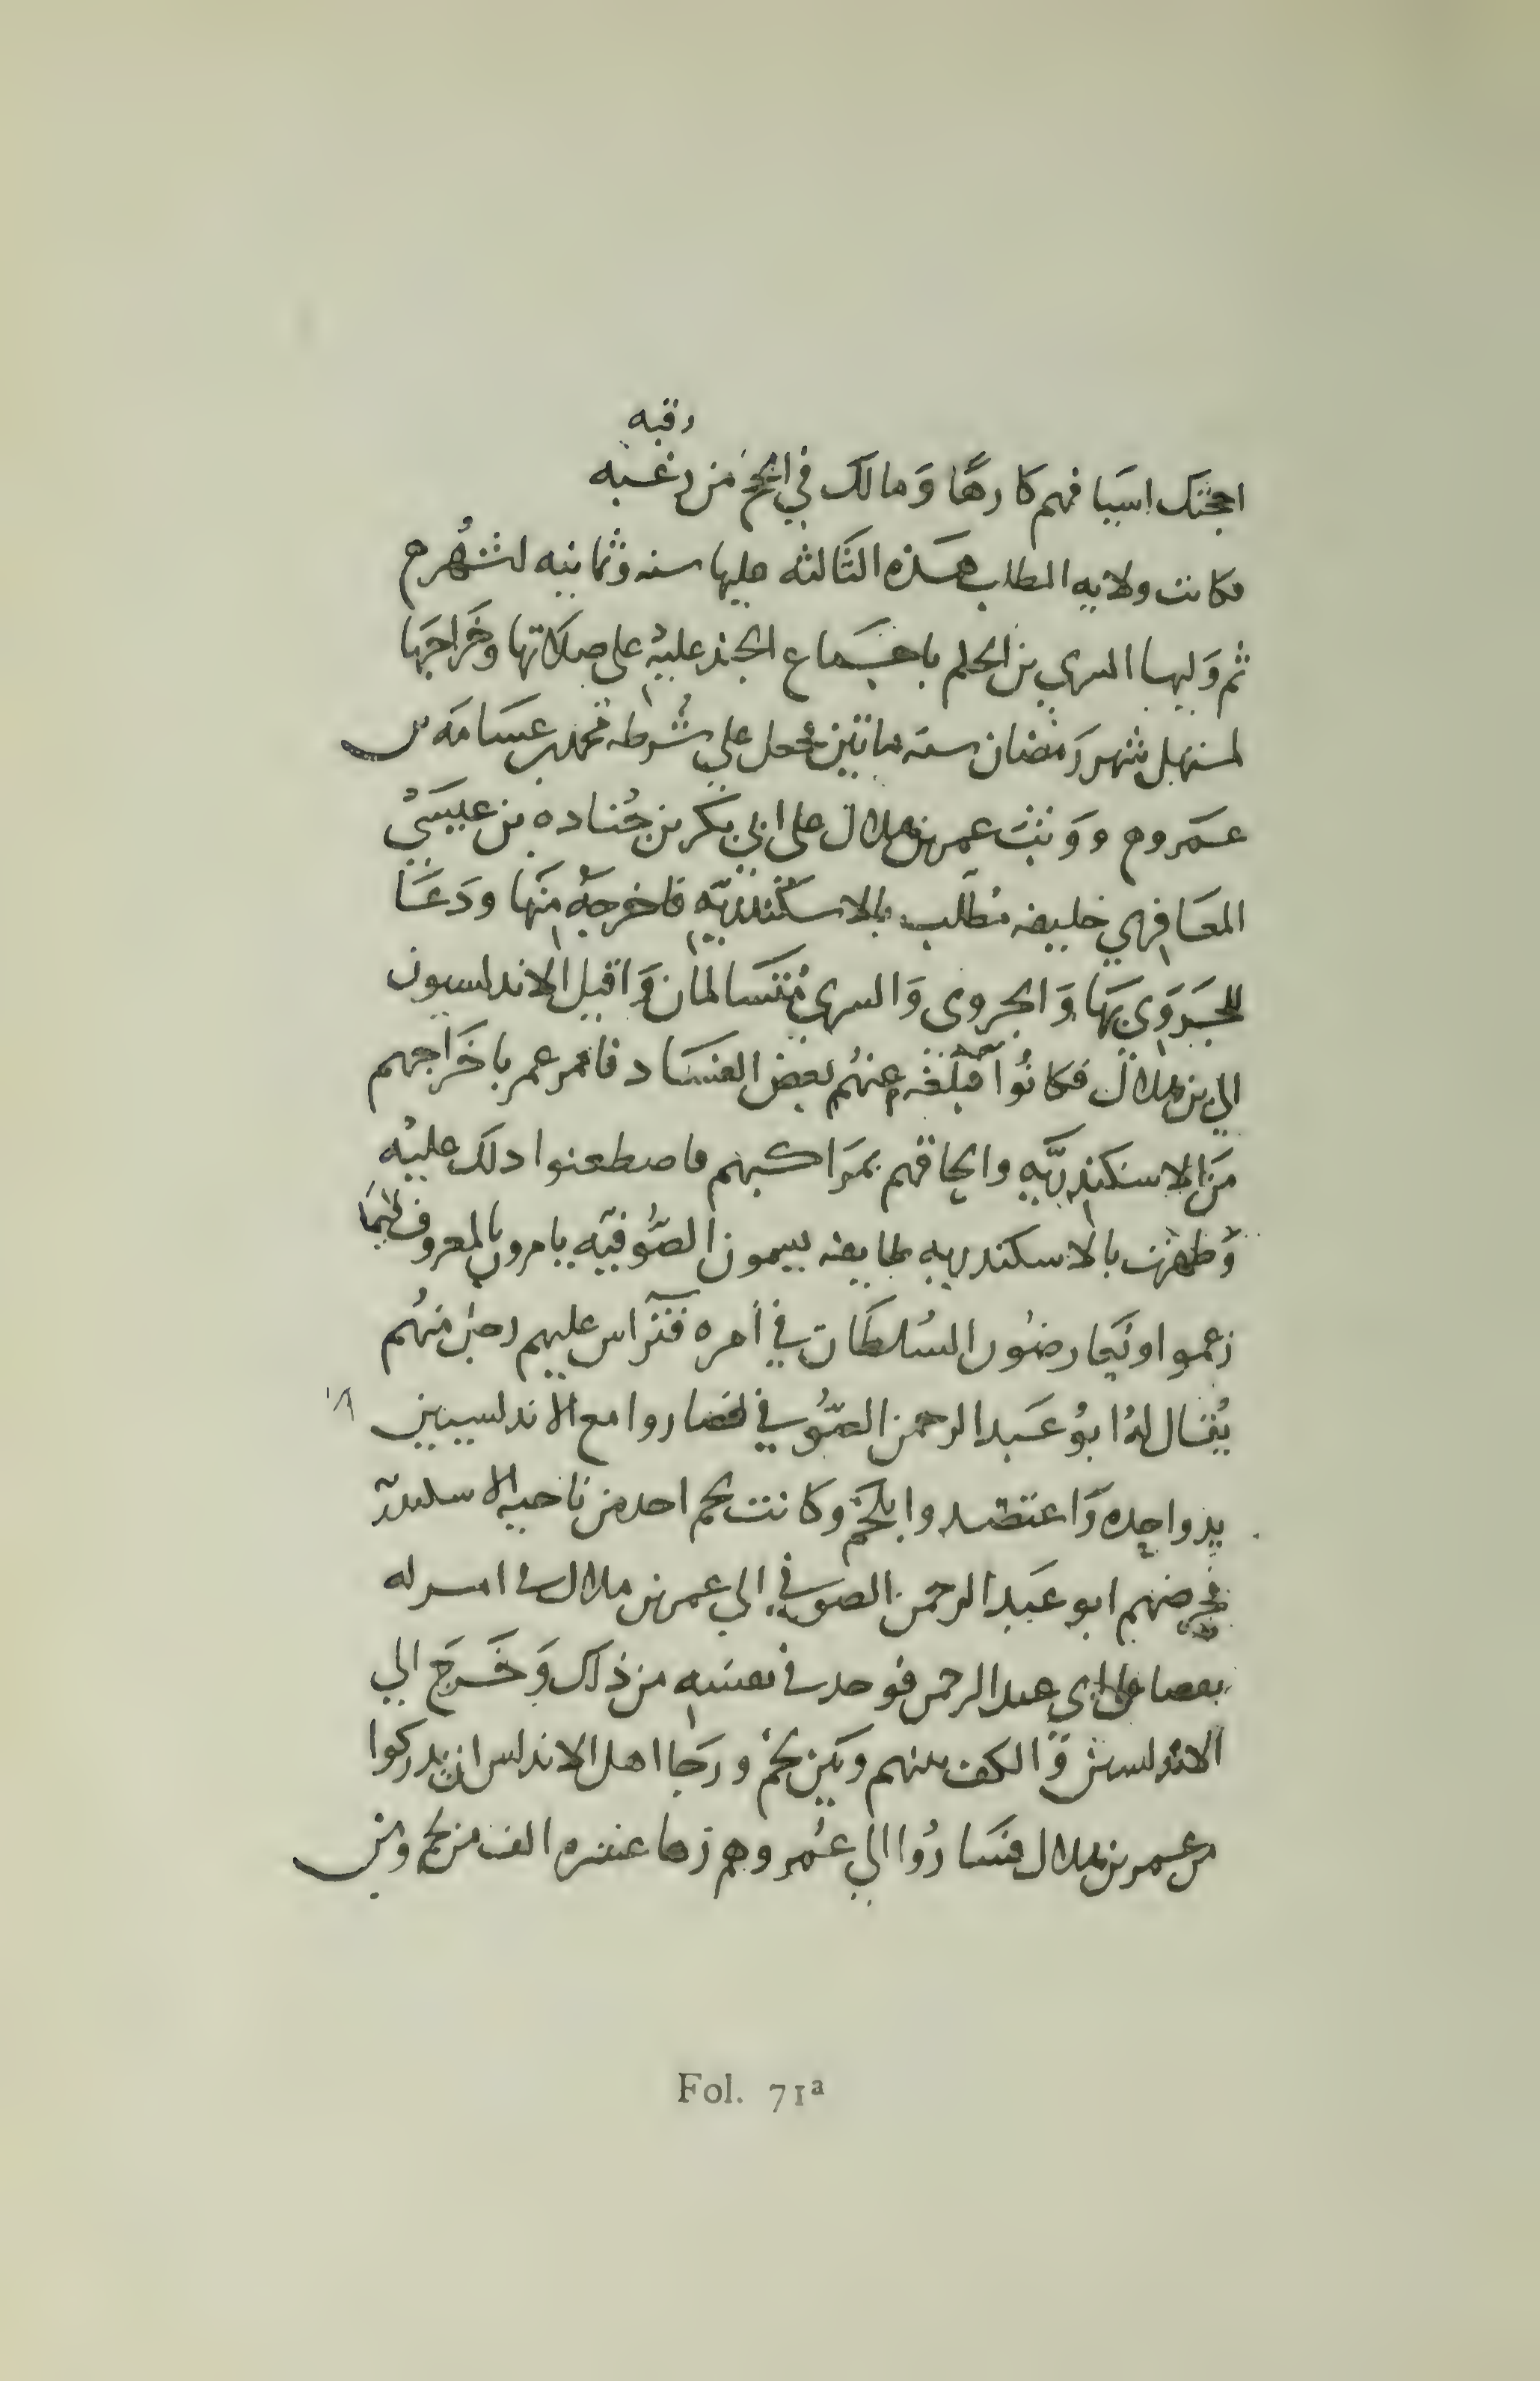 رقبه
اجتك اسيافهم كارهًا وَمالك في الحج من رغبه
فكانت ولايه المطلب هَذه الثالثه عليها سنه وثمانيه اشهر ه
ثم وَليها السري بن الحكم باجتَماع الجند عليه على صلاتها وخَراجها
لمستهل شهر رَمضان سنه مايتين فجعل على شُرطه محمد بن عسَامَه بن
عَمرو ه ووَثبَ عمر بن ملال على ابي بكر بن جُناده بن عيسَي
المعَافِري خليفه مُطلب بالاسكندريَّه فاخرجه منهَا ودَعَا
للجَروَي بهَا وَالجروي وَالسري مُتسَالمان وَاقبل الاندلسيون
الي بن ملال فكانوُا فبلغه عنهُم بعض الفسَاد فامر عمر باخرَاجهم
مَن الاسكندريَّه والحاقهم بمرَاكبهم فاصطعنوا ذلك عليه
وَظهرت بالاسكندريه طايفه يسمون الصُوفيَه يامرون بالمعروف فيمَا
زعموا ويُعارضوُن السُلطان في أمره فترَاس عليهم رجل منهُم
يُقال لهُ ابوُ عَبد الرحمن الصُوفي فصاروا مع الاندلسيين
يد واحده وَاعتضدوا بلخم وكانت لخم احد من ناحيه الاسكندريَّه
فخوصم ابو عَبد الرحمن الصوفي الي عمر بن ملال في امراه
فقضا على ابي عبد الرحمن فوجد في نفسه من ذلك وَخَرجَ الي
الاندلسيين وَالف بينهم وبَين لخم ورَجا اهل الاندلس ان يدركوا
من عمر بن ملال فسَاروُا الي عُمر وهم زها عشره الف من لخم ومن
Fol. 71a